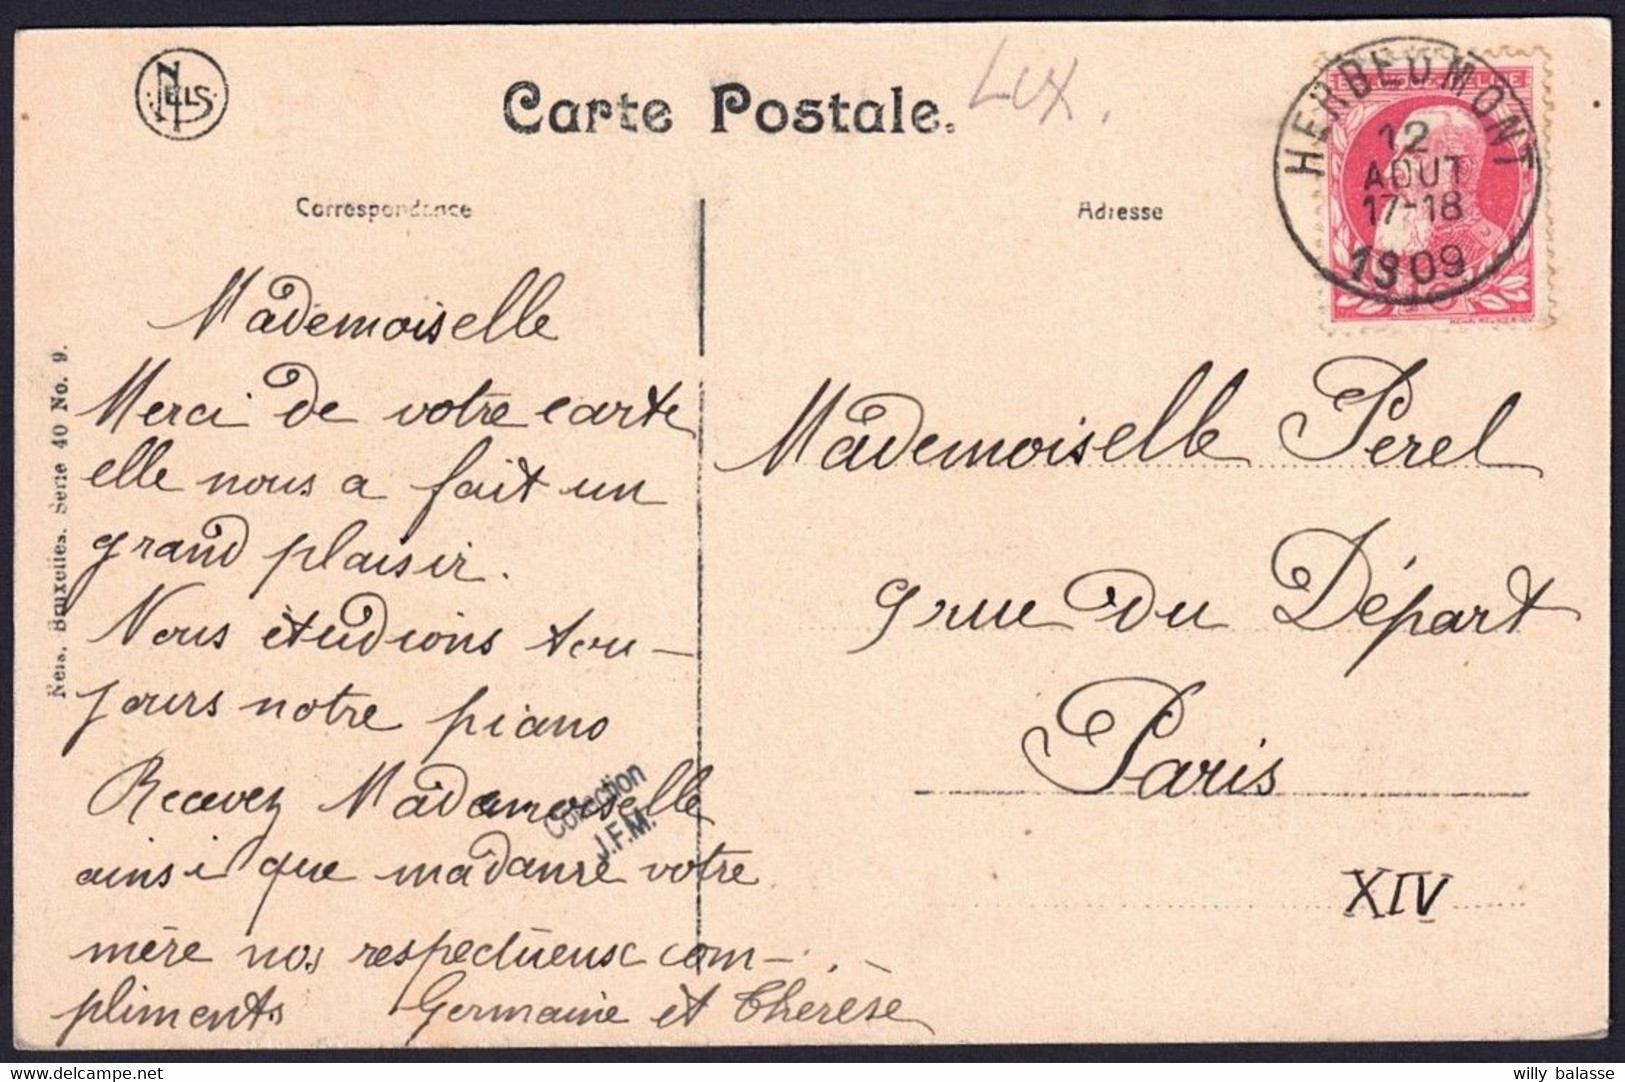 NELS
Carte Postale.
Lux.
HERBEUMONT
12
AOUT
17-18
1909
Correspondance
Adresse
Mademoiselle
Merci de votre carte
elle nous a fait un
grand plaisir.
Nous étudions tou-
jours notre piano
Recevez Mademoiselle
ainsi que madame votre
mère nos respectueux com-
pliments Germaine et Thérèse
Collection
J.F.M.
Nels, Bruxelles. Serie 40 No. 9.
Mademoiselle Perel
9 rue du Départ
Paris
XIV
willy balasse
delcampe.net